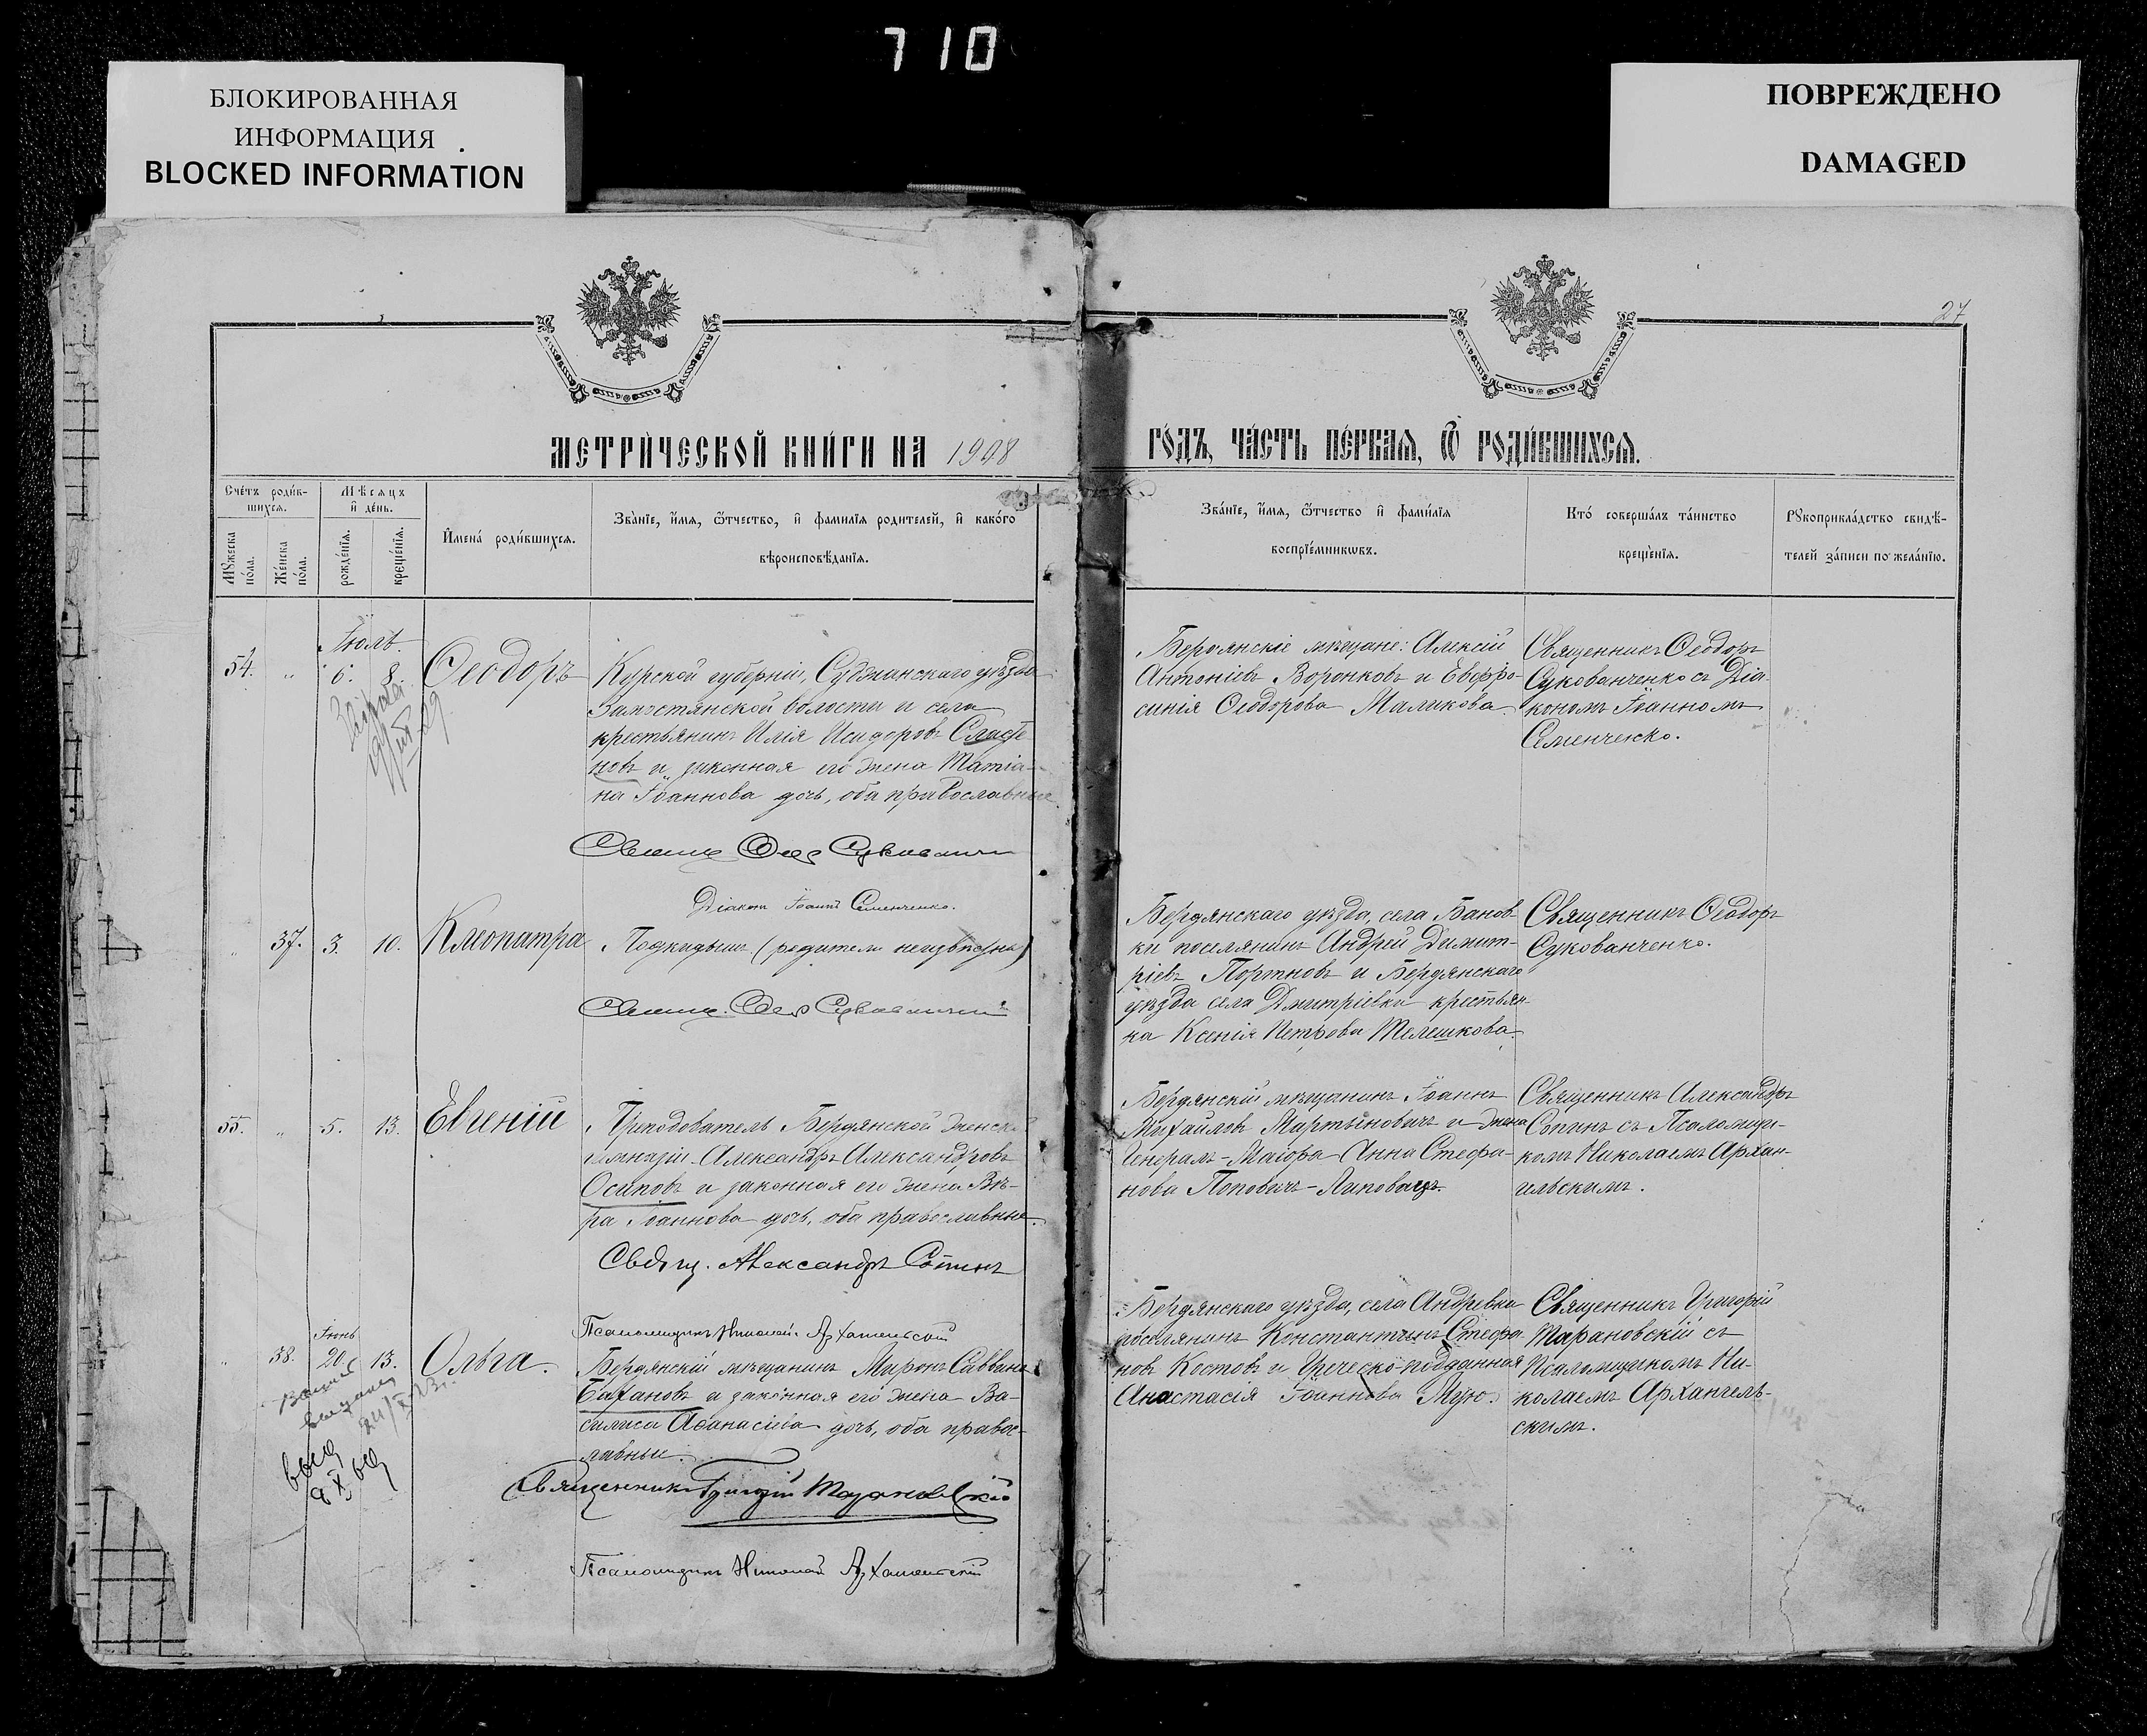 710
БЛОКИРОВАННАЯ
ИНФОРМАЦИЯ
BLOCKED INFORMATION
ПОВРЕЖДЕНО
DAMAGED
27
МЕТРИ́ЧЕСКОЙ КНИ́ГИ НА 1908
ГО́ДЪ, ЧА́СТЬ ПЕ́РВАѦ, Ѿ РОДИ́ВШИХСѦ.
Сче́тъ роди́в-
шихсѧ.
Мꙋжеска по́ла.
Же́нска по́ла.
Мѣ́сяцъ
и҆ де́нь.
рожде́нїѧ.
креще́нїѧ.
И҆мена́ роди́вшихсѧ.
Зва́нїе, и҆́мѧ, ѻ҆́тчество, и҆ фами́лїѧ родителей, и҆ како́гѡ
вѣроисповѣ́данїѧ.
Зва́нїе, и҆́мѧ, ѻ҆́тчество и҆ фами́лїѧ
воспрїе́мникѡвъ.
Кто̀ соверша́лъ та́инство
креще́нїѧ.
Рꙋкоприкла́дство свидѣ́-
телей за́писи по жела́нїю.
Іюль.
54. " 6. 8. Ѳеодоръ
Курской губерніи, Суджанскаго уѣзда
Замостянской волости и села
крестьянинъ Илія Исидоровъ Сласте
новъ и законная его жена Татіа-
на Іоаннова дочь, оба православные.
Діаконъ Іоаннъ Семенченко.
Бердянскіе мѣщане: Алексій
Антоніевъ Воронковъ и Евфро-
синія Ѳеодорова Маликова.
Священникъ Ѳеодоръ
Сукованченко съ Діа-
кономъ Іоанномъ
Семенченко.
" 37. 3. 10. Клеопатра
Подкидышъ (родители неизвѣстны)
Бердянскаго уѣзда, села Банов-
ки поселянинъ Андрей Димит-
ріевъ Портновъ и Бердянскаго
уѣзда села Дмитріевки крестьян-
ка Ксенія Петрова Телешкова.
Священникъ Ѳеодоръ
Сукованченко.
55. " 5. 13. Евгеній
Преподователь Бердянской женск
гимназіи Александръ Александровъ
Осиповъ и законная его жена Вѣ-
ра Іоаннова дочь, оба православные.
Свящ. Александръ Сопинъ
Псаломщикъ Николай Архангельскій
Бердянскій мѣщанинъ Іоаннъ
Михайловъ Мартыновичъ и жена
Генералъ-Маіора Анна Стефа-
нова Поповичъ-Липовацъ.
Священникъ Александръ
Сопинъ съ Псаломщи-
комъ Николаемъ Архан-
гельскимъ.
Іюнь
" 38. 20. 13. Ольга.
Бердянскій мѣщанинъ Миронъ Саввинъ
Бахановъ и законная его жена Ва-
силиса Аѳанасіева дочь, оба правос-
лавные.
Священникъ Григорій Тарановскій
Псаломщикъ Николай Архангельскій
Бердянскаго уѣзда, села Андревки
поселянинъ Константинъ Стефа-
новъ Костовъ и Греческо-подданная
Анастасія Іоаннова Мую.
Священникъ Григорій
Тарановскій съ
Псаломщикомъ Ни-
колаемъ Архангель-
скимъ.